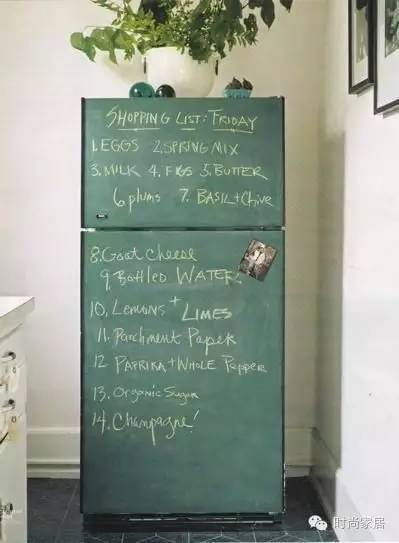 SHOPPING LIST: FRIDAY
1. EGGS 2. SPRING MIX
3. MILK 4. FIGS 5. BUTTER
6 plums 7. BASIL + Chive
8. Goat cheese
9. Bottled WATER
10. Lemons + LIMES
11. Parchment Paper
12 PAPRIKA + WHOLE Pepper
13. Organic Sugar
14. Champagne!
时尚家居